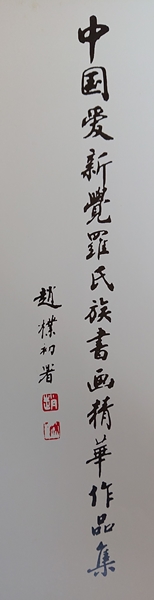 中国爱新覺羅氏族書画精華作品集
趙樸初署